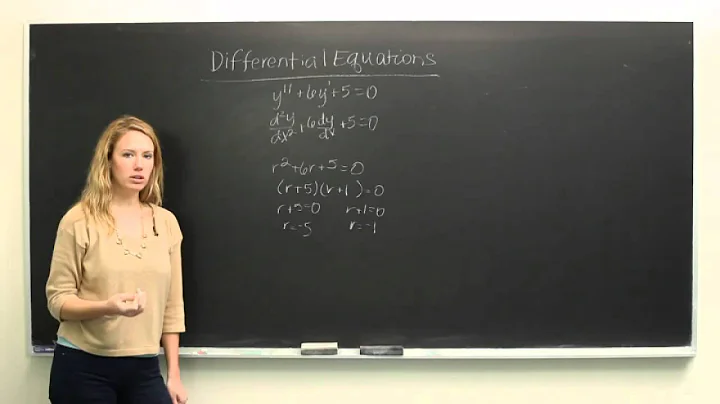 Differential Equations
y'' + 6y' + 5 = 0
d²y/dx² + 6 dy/dx + 5 = 0
r² + 6r + 5 = 0
(r+5)(r+1) = 0
r+5=0 r+1=0
r=-5 r=-1